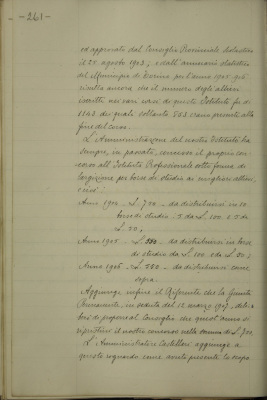 -261-
ed approvato dal Consiglio Provinciale Scolastico
il 25 agosto 1903, e dall'annuario statistico
del Municipio di Torino per l'anno 1905 già
risulta ancora che il numero degli allievi
iscritti nei vari corsi di questo Istituto fu di
1143 dei quali soltanto 783 erano presenti alla
fine del corso.
L'Amministrazione del nostro Istituto ha
sempre, in passato, concesso il proprio con-
corso all'Istituto Professionale sotto forma di
largizione per borse di studio ai migliori allievi,
e cioè:
Anni 190 - L. 700 - da distribuirsi in 10
borse di studio: 5 da L. 100 e 5 da
L. 50;
Anno 1905 - L. 550 - da distribuirsi in borse
di studio da L. 100 e da L. 50;
Anno 1906 - L. 550 - da distribuirsi come
sopra.
Aggiunge infine il Riferente che la Giunta
in seduta del 12 marzo 1907, deli-
berò di proporre al Consiglio che quest'anno si
ripristini il nostro concorso nella somma di L. 700.
L'Amministratore Castellari aggiunge a
questo riguardo come avuto presente lo scopo